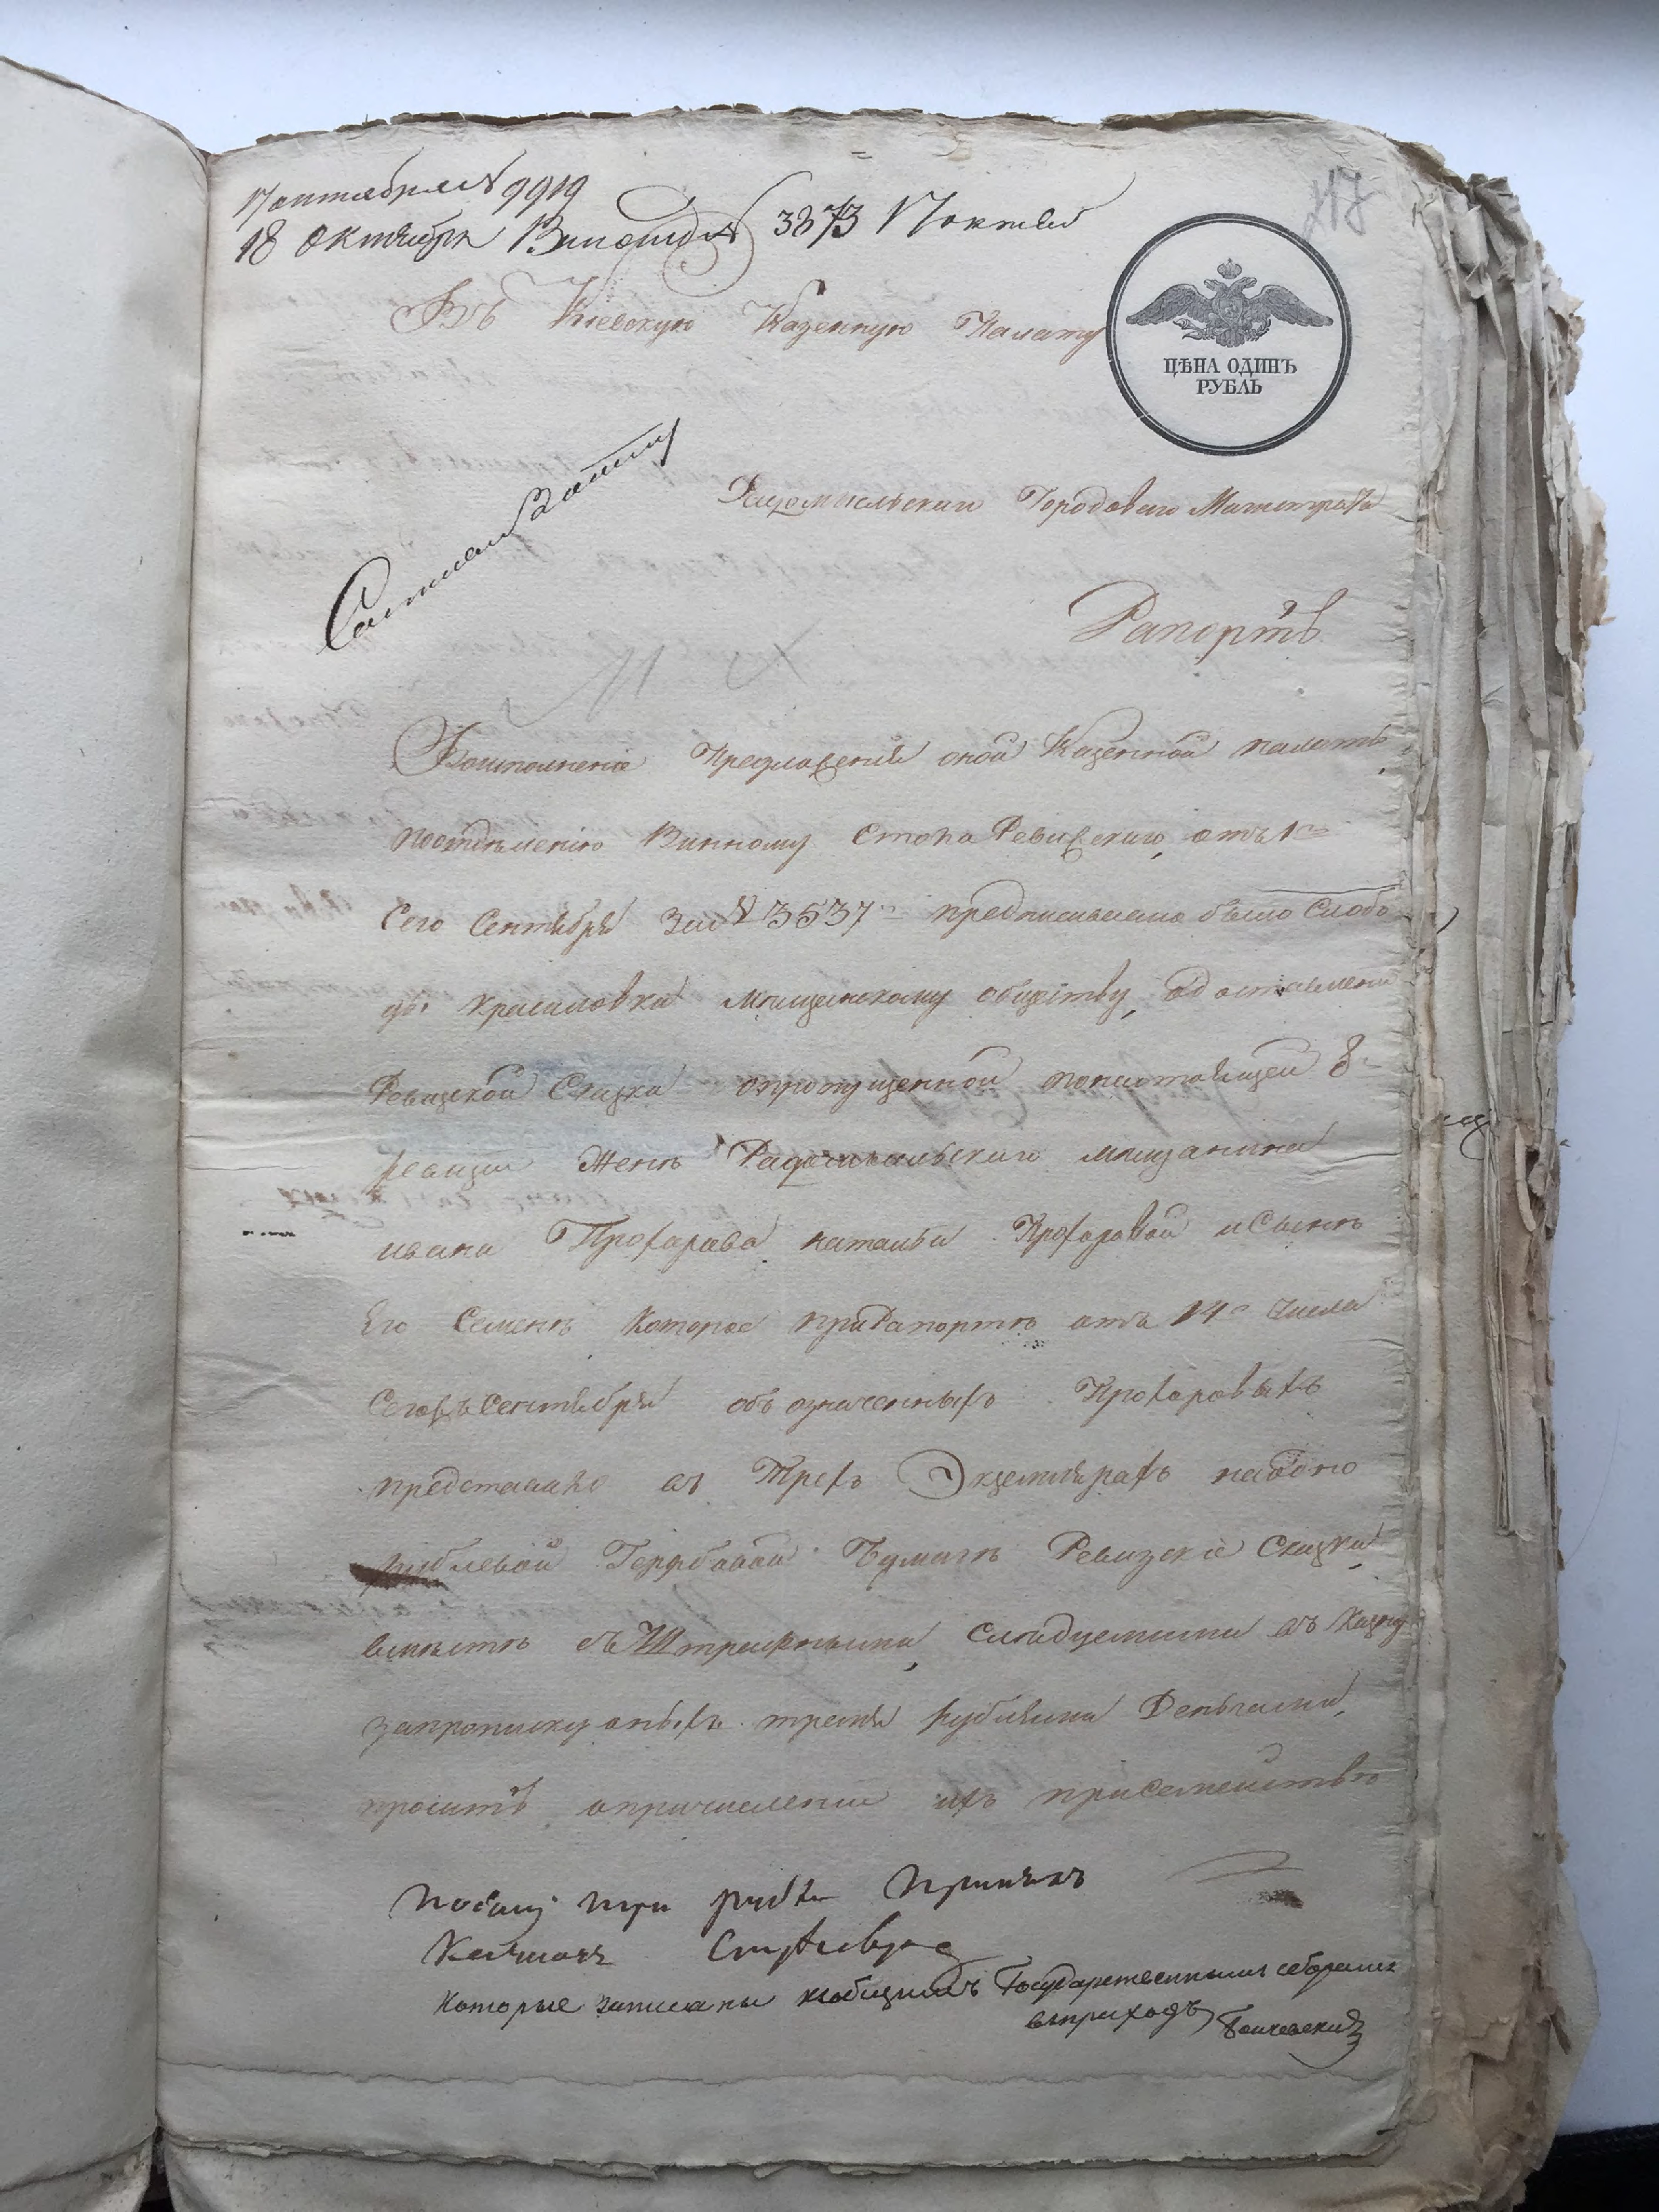 17 октября № 9919
18 октября № 3873 17 октяб
Въ Кіевскую Казенную Палату
ЦѢНА ОДИНЪ
РУБЛЬ
Радомысльскаго Городоваго Магистрата
Рапортъ
Воисполненіе Предложенія оной Казенной палаты,
поотделенію Винному Стола Ревизскаго, отъ 1го
Сего Сентября за № 3537м предписывано было Слобо
ды красиловки мещанскому обществу, одоставлении
Ревизской Сказки опропущенной понастоящей 8й
ревизіи Жене Радомысльскаго мещанина
ивана Прохарова натальи Прохоровой и Сыне
Его Семене Которое приРапорте отъ 14го числа
Сегожъ Сентября объ означенныхъ Прохоровыхъ
представило въ Трехъ Экземплярахъ наодно
рублевой Гербовой Бумаге Ревизскіе Сказки
вместе съ Штрафными, Следуемыми въ Казну
запрописку оныхъ тремя рублями Деньгами,
проситъ опричислении ихъ присемействе
три рубли Принялъ
которые записаны кобщимъ Государственнымъ сборамъ
вприходъ